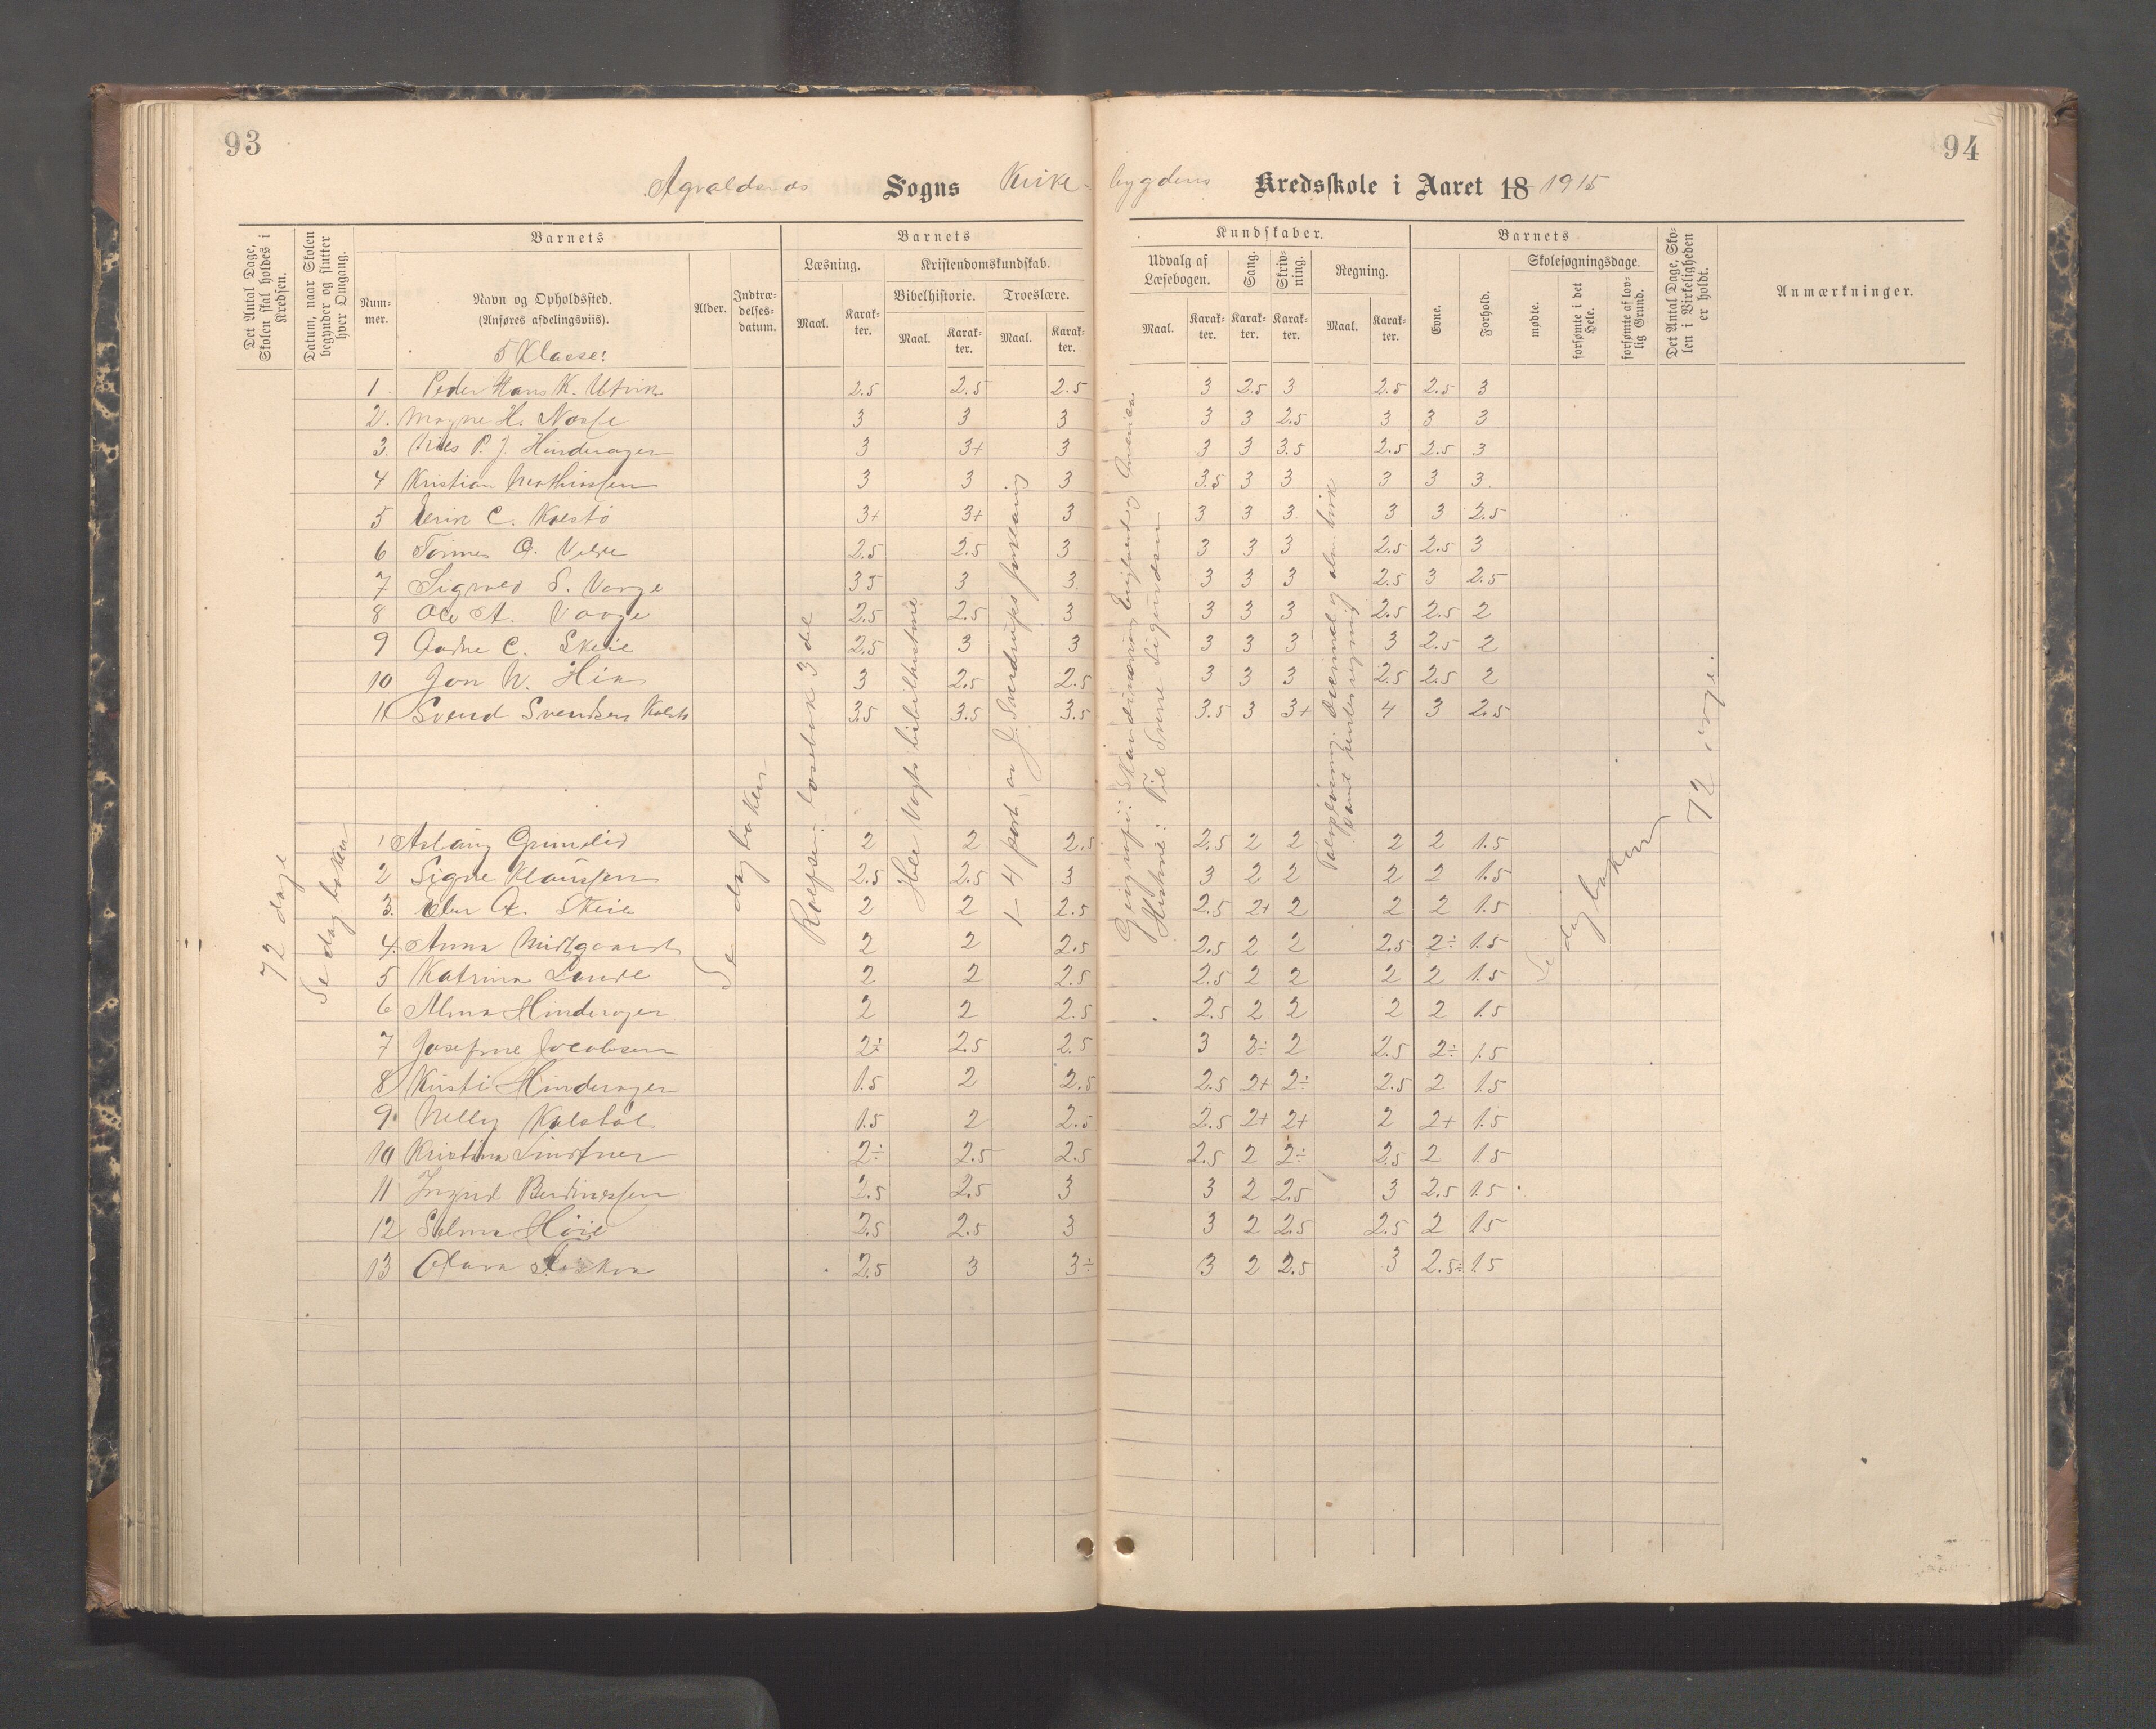 93
94
Agvaldsnes Sogns Kirke-bygdens Kredsskole i Aaret 18 1915
Det Antal Dage, Skolen skal holdes i Kredsen.
Datum, naar Skolen begynder og slutter hver Omgang.
Barnets
Num-mer.
Navn og Opholdssted. (Anføres afdelingsviis).
5 Klasse:
Alder.
Indtræ-delses-datum.
Barnets
Læsning.
Maal.
Karak-ter.
Kristendomskundskab.
Bibelhistorie.
Maal.
Karak-ter.
Troeslære.
Maal.
Karak-ter.
Kundskaber.
Udvalg af Læsebogen.
Maal.
Karak-ter.
Sang.
Karak-ter.
Skriv-ning.
Karak-ter.
Regning.
Maal.
Karak-ter.
Barnets
Evne.
Forhold.
Skolesøgningsdage.
mødte.
forsømte i det Hele.
forsømte af lov-lig Grund.
Det Antal Dage, Sko-len i Virkeligheden er holdt.
Anmærkninger.
1. Peder Hans K. Utvik 2.5 2.5 2.5 3 2.5 3 2.5 2.5 3
2. Magne H. Norse 3 3 3 3 3 2.5 3 3 3
3. Nils P. J. Hinderager 3 3+ 3 3 3 3.5 2.5 2.5 3
4 Kristian Mathiassen 3 3 3 3.5 3 3 3 3 3
5 Erik C. Kolstø 3+ 3+ 3 3 3 3 3 3 2.5
6 Tormes A. Velde 2.5 2.5 3 3 3 3 2.5 2.5 3
7 Sigvald S. Vorge 3.5 3 3 3 3 3 2.5 3 2.5
8 Ole A. Vorge 2.5 2.5 3 3 3 3 2.5 2.5 2
9 Aadne C. Skeie 2.5 3 3 3 3 3 3 2.5 2
10 Jon W. Hia 3 2.5 2.5 3 3 3 2.5 2.5 2
11 Svend Svendsen Kolstø 3.5 3.5 3.5 3.5 3 3+ 4 3 2.5
1 Aslaug Grindeid 2 2 2.5 2.5 2 2 2 2 1.5
2 Signe Klaussen 2.5 2.5 3 3 2 2 2 2 1.5
3. A. Skeie 2 2 2.5 2.5 2+ 2 2 2 1.5
4. Anna Midtgaard 2 2 2.5 2.5 2 2 2.5 2÷ 1.5
5 Katrina Lande 2 2 2.5 2.5 2 2 2 2 1.5
6 Alma Hinderager 2 2 2.5 2.5 2 2 2 2 1.5
7 Josefine Jacobsen 2÷ 2.5 2.5 3 2÷ 2 2.5 2÷ 1.5
8 Kristi Hinderager 1.5 2 2.5 2.5 2+ 2÷ 2.5 2 1.5
9. Nelly Kolstøl 1.5 2 2.5 2.5 2+ 2+ 2 2+ 1.5
10 Kristina Lindtner 2÷ 2.5 2.5 2.5 2 2÷ 2.5 2 1.5
11 Ingrid Berdinessen 2.5 2.5 3 3 2 2.5 3 2.5 1.5
12 Selma Høie 2.5 2.5 3 3 2 2.5 2.5 2 1.5
13 Olava 2.5 3 3÷ 3 2 2.5 3 2.5÷ 1.5
72 dage
Se dagboken
Se dagboken
Rolfsen: læsebok 3 del
Hele Vogts bibelhistorie
1–4 part av J. Sverdrups forklaring
Geografi: Skandinavien, England og Amerika
Historie: Til Sverre Sigurdsøn
Se dagboken
72 dage.